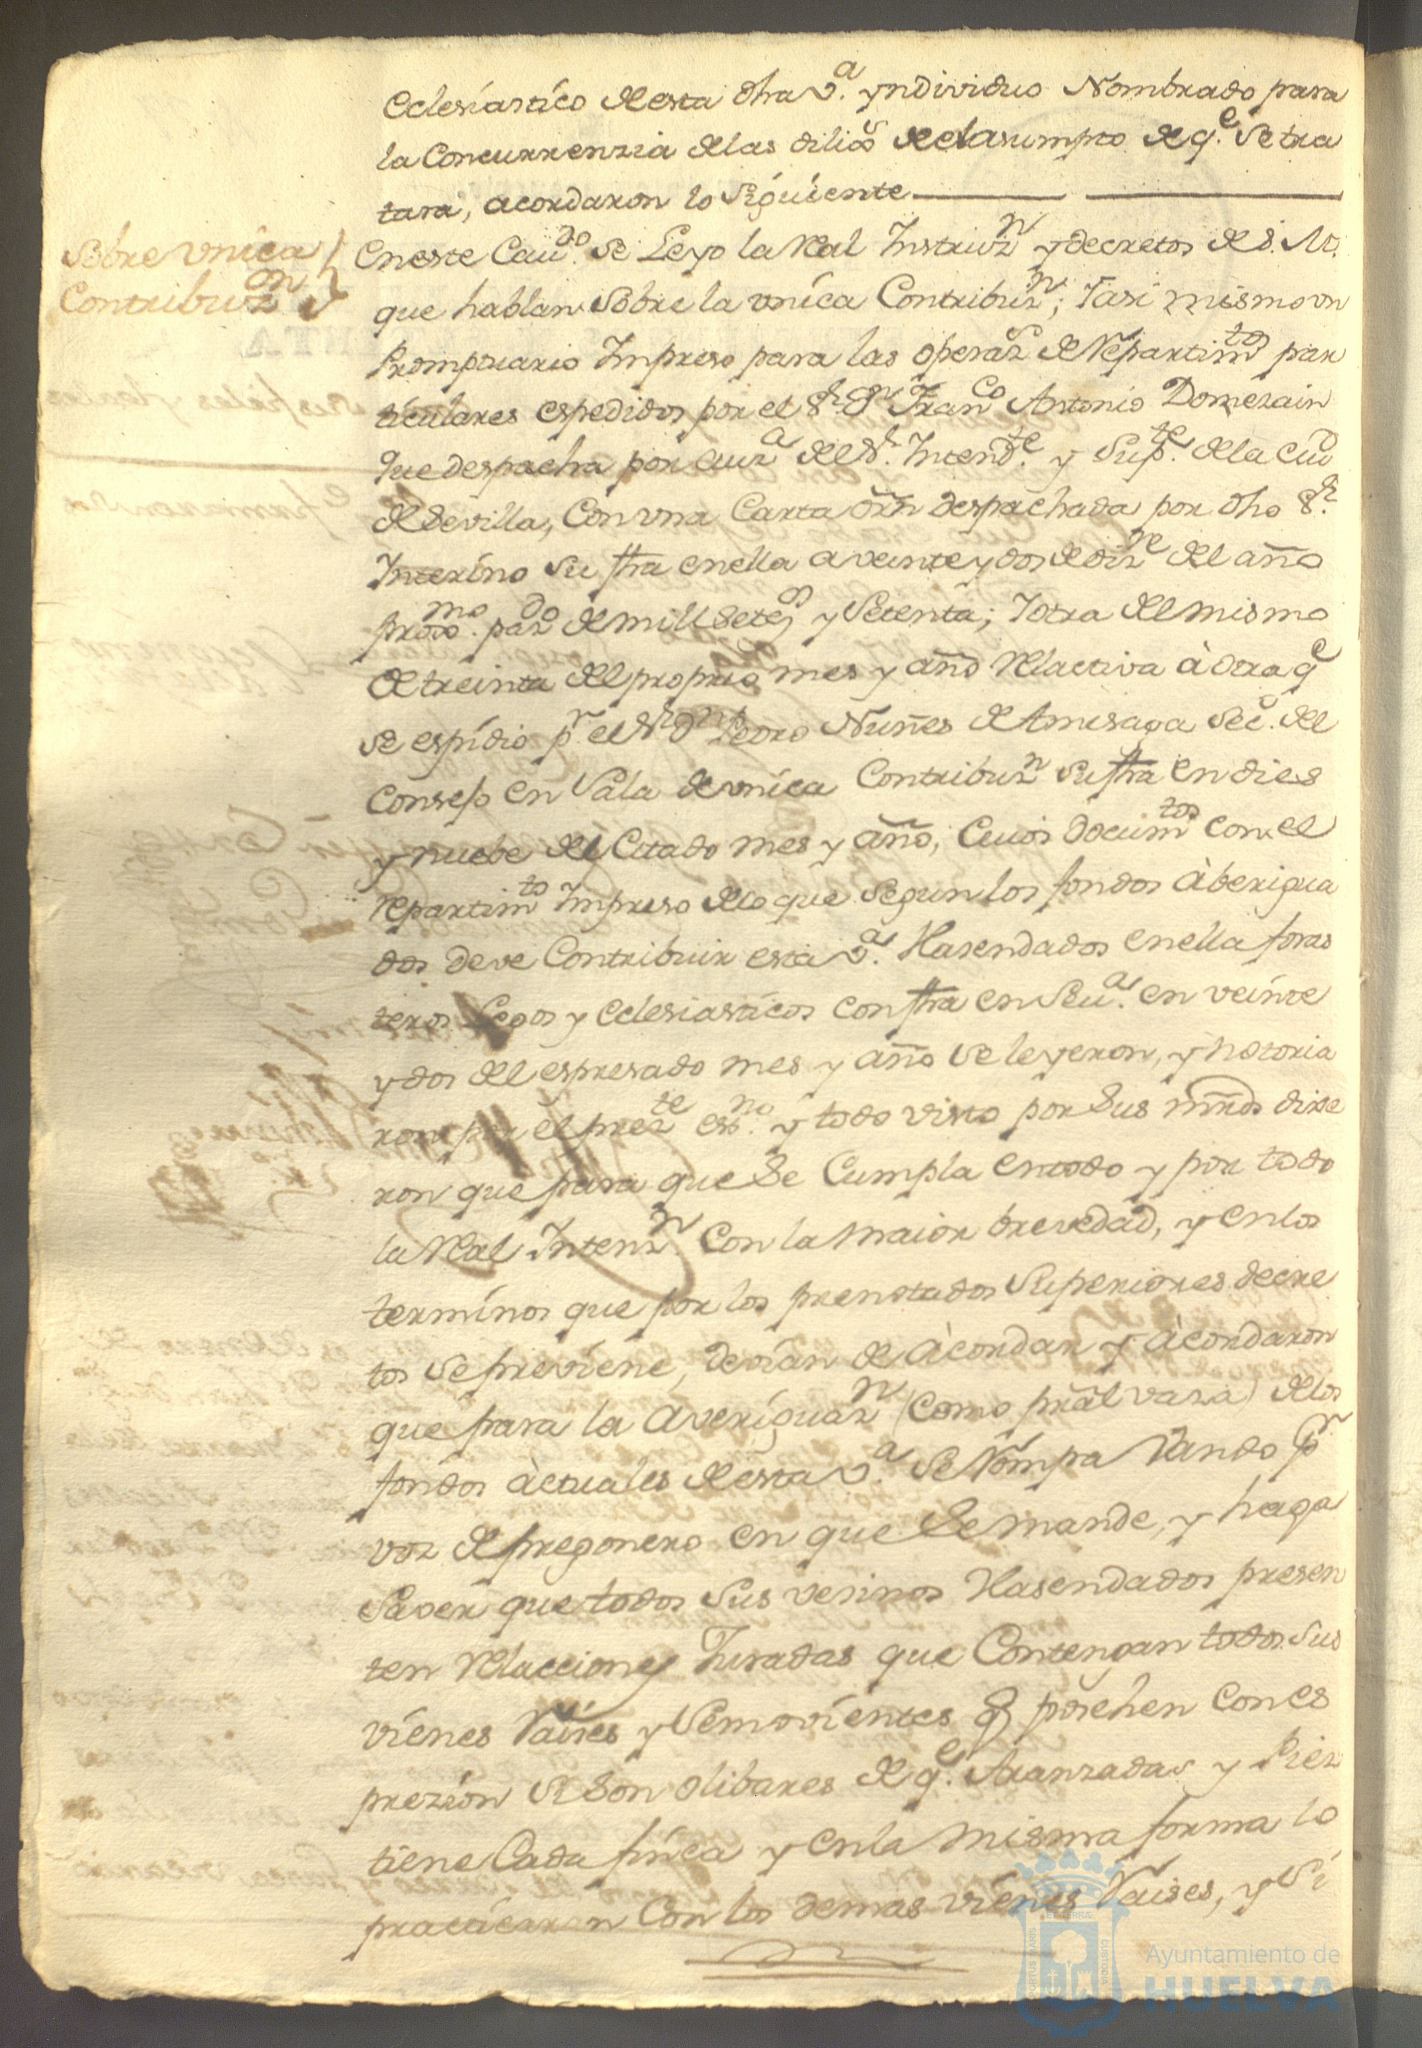 eclesiastico desta dha v.ª yndividuo Nombrado para
la Concurrenzia delas dilig.s del asumpto de q.e se tra
tara, acordaron lo siguiente
Sobre vnica
Contribuz.on
En este Cau.do se Leyo la Real Instruz.n y decretos de S. M.
que hablan sobre la vnica Contribuz.n; Y asi mismo vn
Prompuario Impreso para las operaz.s de Repartim.tos par
ticulares espedidos por el S.r D.n Fran.co Antonio Domezain
que despacha por auz.a del S.r Intend.te y Sup.te de la Ciu.d
de Sevilla, Con vna Carta orn despachada por dho S.r
Interino su fha en ella a veinte y dos de diz.re del año
proxo.mo paz.do de mill setez.s y setenta; Y otra del mismo
de treinta del proprio mes y año Relactiva à otra q.e
se espidio p.r el S.r D.n Pedro Nuñes de Amesaga Sec. del
Consejo en Sala de vnica Contribuz.n su fha en dies
y nuebe del Citado mes y año; Cuios docum.tos con el
Repartim.to Impreso delo que segun los fondos àberigua
dos deve Contribuir esta v.ª Hasendados en ella foras
teros Legos y eclesiasticos con fha en Seu.ª en veinte
y dos del espresado mes y año se leyeron, y notoria
ron por el prez.te es.no y todo visto por sus mrds dixe
ron que para que se Cumpla en todo y por todo
la Real Intenz.n Con la maior brevedad, y en los
terminos que por los prenotados superiores decre
tos se previene, devian de àcordar y àcordaron
que para la averiguaz.n (como pral vaza) de los
fondos àctuales desta v.ª se Rompa Vando p.r
voz de pregonero en que se mande, y haga
saver que todos sus vesinos Hasendados presen
ten Relacciones Juradas que Contengan todos sus
vienes Raises y Semovientes q poxehen con es
prezion si son olibares de q.e Aranzadas y Piez
tiene Cada finca y en la misma forma lo
practicaran Con los demas vienes Raises, y si
Ayuntamiento de
HUELVA